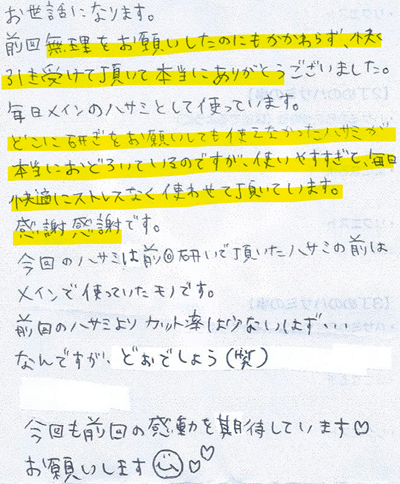 お世話になります。
前回無理をお願いしたのにもかかわらず、快く
引き受けて頂いて本当にありがとうございました。
毎日メインのハサミとして使っています。
どこに研ぎをお願いしても使えなかったハサミが
本当におどろいているのですが、使いやすすぎて、毎日
快適にストレスなく使わせて頂いています。
感謝感謝です。
今回のハサミは前回研いで頂いたハサミの前は
メインで使っていたモノです。
前回のハサミより カット率は少ないはず・・・
なんですが、どぉでしょう(笑)
今回も前回の感動を期待しています♡
お願いします☺♡♡